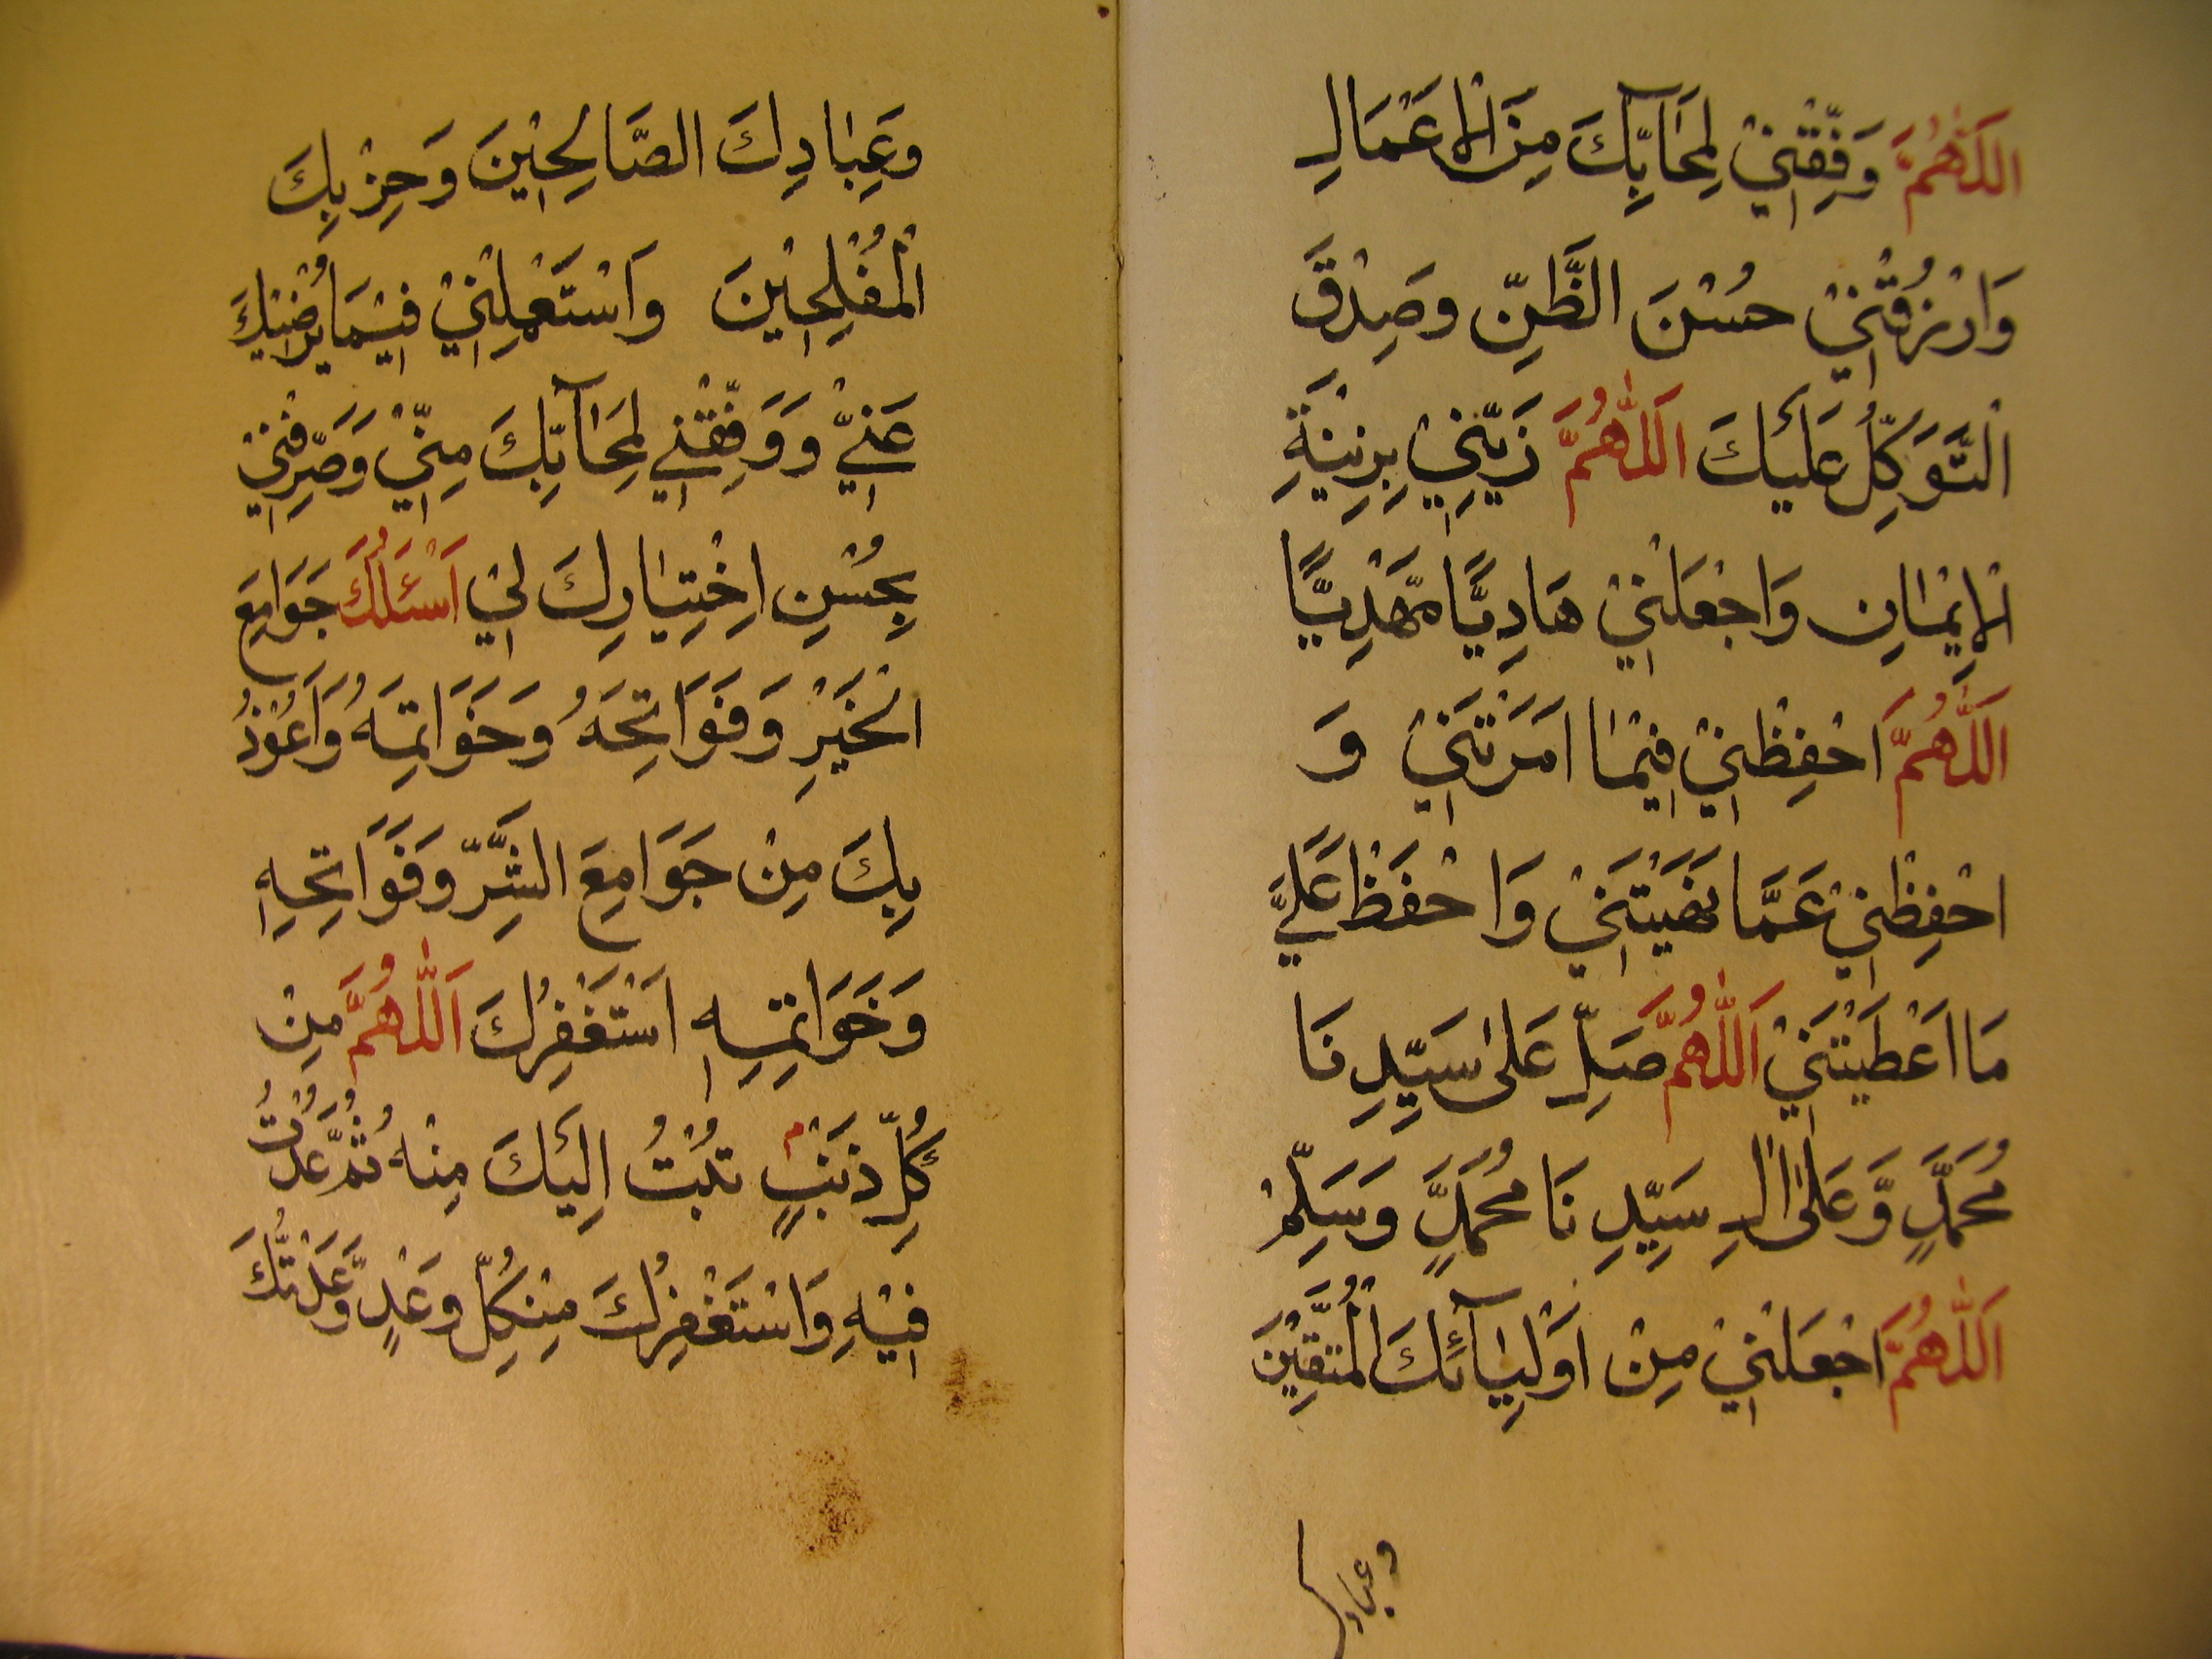 اَللّٰهُمَّ وَفِّقْنِيْ لِمَحَآبِّكَ مِنَ الْاَعْمَالِ
وَارْزُقْنِيْ حُسْنَ الظَّنِّ وَصِدْقَ
التَّوَكُّلِ عَلَيْكَ اَللّٰهُمَّ زَيِّنِّيْ بِزِيْنَةِ
الْاِيْمَانِ وَاجْعَلْنِيْ هَادِيًّا مَّهْدِيًّا
اَللّٰهُمَّ احْفِظْنِيْ فِيْمَا اَمَرْتَنِيْ وَ
احْفِظْنِيْ عَمَّا نَهَيْتَنِيْ وَاحْفَظْ عَلَيَّ
مَا اَعْطَيْتَنِيْ اَللّٰهُمَّ صَلِّ عَلٰى سَيِّدِنَا
مُحَمَّدٍ وَّعَلٰى اٰلِ سَيِّدِنَا مُحَمَّدٍ وَسَلِّمْ
اَللّٰهُمَّ اجْعَلْنِيْ مِنْ اَوْلِيَآئِكَ الْمُتَّقِيْنَ
وعبادك
وَعِبَادِكَ الصَّالِحِيْنَ وَحِزْبِكَ
الْمُفْلِحِيْنَ وَاسْتَعْمِلْنِيْ فِيْمَا يُرْضِيْكَ
عَنِّيْ وَوَفِّقْنِيْ لِمَحَآبِّكَ مِنِّيْ وَصَرِّفْنِيْ
بِحُسْنِ اخْتِيَارِكَ لِيْ اَسْئَلُكَ جَوَامِعَ
الْخَيْرِ وَفَوَاتِحَهُ وَخَوَاتِمَهُ وَاَعُوْذُ
بِكَ مِنْ جَوَامِعِ الشَّرِّ وَفَوَاتِحِهٖ
وَخَوَاتِمِهٖ اَسْتَغْفِرُكَ اَللّٰهُمَّ مِنْ
كُلِّ ذَنْبٍ تُبْتُ اِلَيْكَ مِنْهُ ثُمَّ عُدْتُ
فِيْهِ وَاسْتَغْفِرُكَ مِنْ كُلِّ وَعْدٍ وَّعَدْتُّكَ